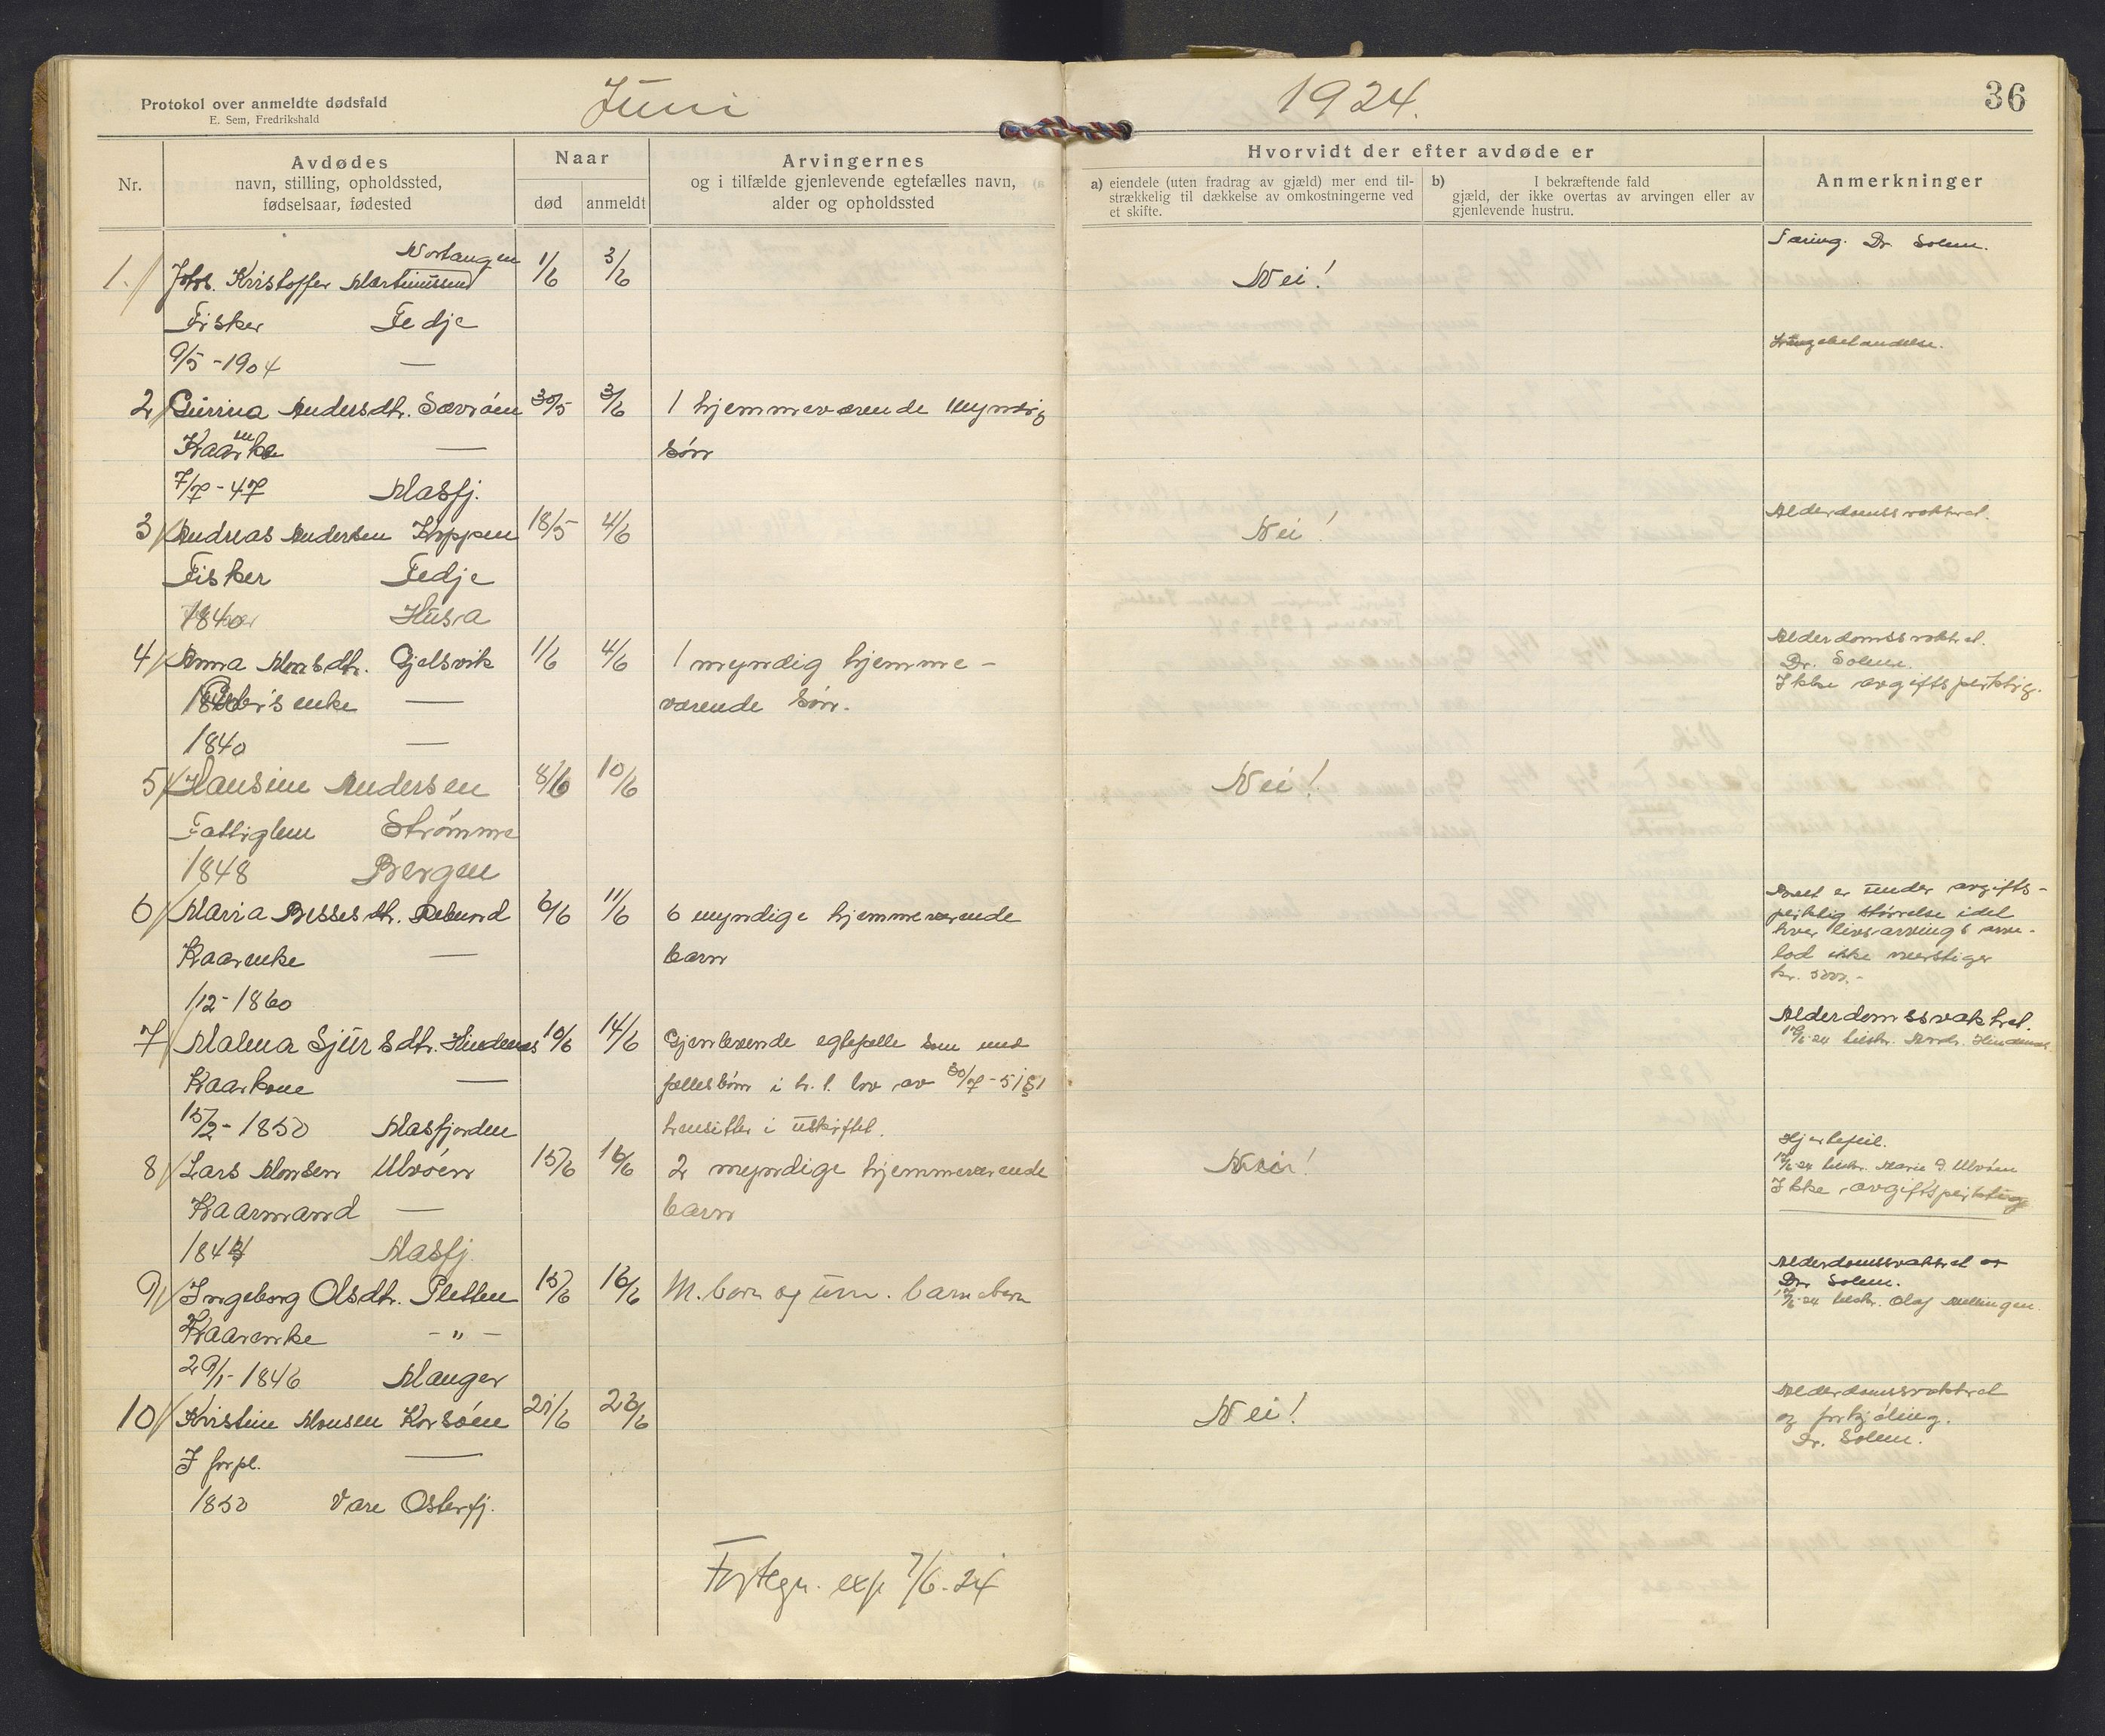 Protokol over anmeldte dødsfald
E. Sem, Fredrikshald
Juni
1924.
36
Nr.
Avdødes
navn, stilling, opholdssted,
fødselsaar, fødested
Naar
død
anmeldt
Arvingernes
og i tilfælde gjenlevende egtefælles navn,
alder og opholdssted
Hvorvidt der efter avdøde er
a) eiendele (uten fradrag av gjæld) mer end til-
strækkelig til dækkelse av omkostningerne ved
et skifte.
b) I bekræftende fald
gjæld, der ikke overtas av arvingen eller av
gjenlevende hustru.
Anmerkninger
Nortangen
1. Johs. Kristoffer Martinussen 1/6 3/6 Nei! Tæring. Dr. Solem.
Fisker Fedje
9/5-1904 —
2 Gurina Andersdtr. Sævrøen 30/5 3/6 1 hjemmeværende myndig
—
søn
7/7-47 Masfj.
3 Andreas Andersen Koppen 18/5 4/6 Nei! Alderdomssvakhet.
Fisker Fedje
1840 Husa
4 Anna Monsdtr. Gjelsvik 1/6 4/6 1 myndig hjemme-
værende søn.
Alderdomssvakhet.
Dr. Solem.
Ikke avgiftspliktig.
enke —
1840 —
5 Hansine Andersen 8/6 10/6 Nei!
Fattiglem Strømme
1848 Bergen
6 Maria Bessesdtr. 6/6 11/6 6 myndige hjemmeværende
barn
Boet er under avgifts-
pliktig størrelse idet
hver livsarvings arve-
lod ikke overstiger
kr.
Kaarenke —
1/12-1860
7 Malena Sjursdtr. Hindenes 10/6 14/6 Gjenlevende egtefælle som med
fællesbørn i h. t. lov av 30/7-51 § 1
hensitter i uskiftet.
Alderdomssvakhet.
Kaarkone —
15/2-1850 Masfjorden
8 Lars Monsen Ulvøen 15/6 16/6 2 myndige hjemmeværende
barn
Hjertefeil.
Marie Ulvøen
Ikke avgiftspliktig
Kaarmand —
Masfj.
9 Ingeborg Olsdtr. Pletten 15/6 16/6 M. barn og um. barnebarn
Alderdomssvakhet
Dr. Solem.
Olaf Mellingen.
Kaarenke - " -
29/1-1846 Manger
10 Kristine Monsen Korsøen 21/6 23/6 Nei! Alderdomssvakhet
og forkjøling.
Dr. Solem.
I forpl. —
1850 Vare Osterfj.
Fortegn. exp. 7/6-24